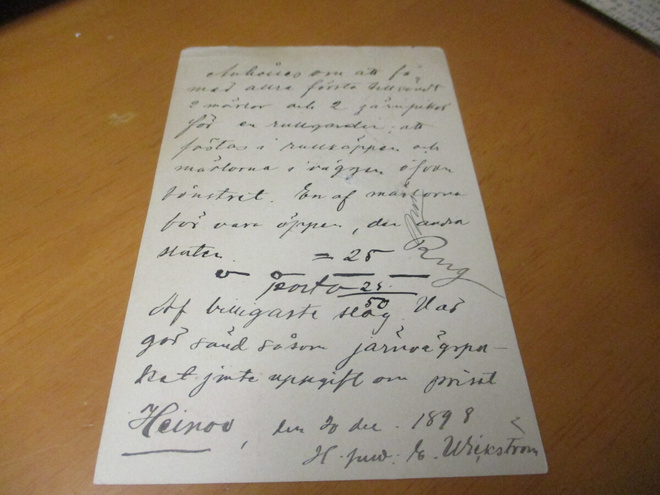 Anhålles om att få
med allra första tillsändt
2 märlor och 2 järnpikar
för en rullgardin; att
fästas i rullkäppen och
märlorna i väggen öfver
fönstret. En af märlorna
bör vara öppen, den andra
sluten. = 25
porto 25
50
Af billigaste slag. Var
god sänd såsom järnvägspa-
ket jemte uppgift om priset
Heinoo, den 20 dec. 1898
E. Wickström